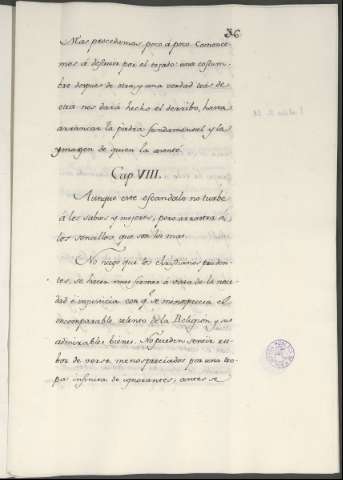 36
Mas procedamos poco á poco. Comence-
mos á destruir por el tejado: una costum-
bre despues de otra, y una verdad trás de
otra nos dará hecho el derribo, hasta
arrancar la piedra fundamental y la
ymagen de quien la asentó.
Cap. VIII.
Aunque este escandalo no turbe
á los sabios y mejores, pero arrastra á
los sencillos, que son los mas.
No niego que los christianos pruden-
tes, se hacen mas firmes á vista de la nece-
dad é impericia con q.e se menosprecia el
incomparable talento de la Religion, y sus
admirables bienes. No pueden sentir ru-
bor de verse menospreciados por una tro-
pa infinita de ignorantes; antes se